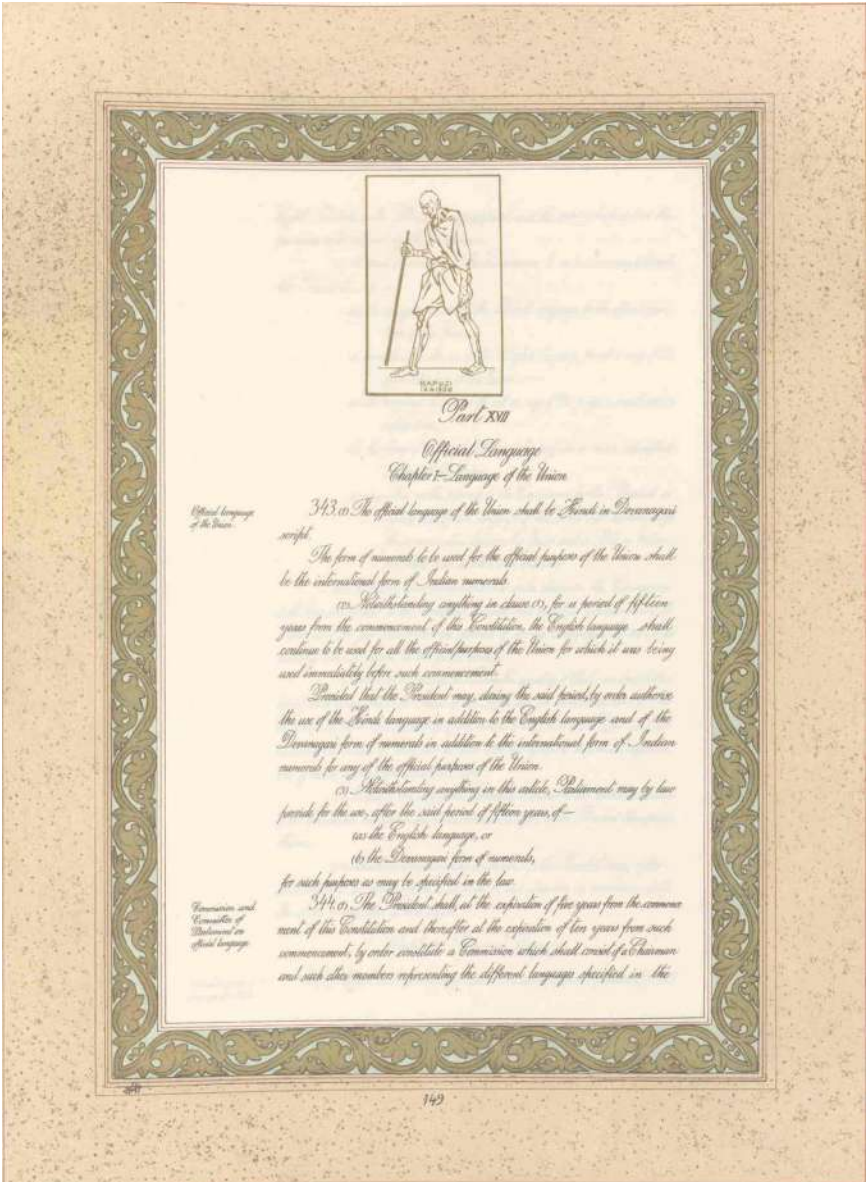 BAPUJI
12 4 1930
Part XVII
Official Language
Chapter I—Language of the Union
Official language
of the Union.
343. (1) The official language of the Union shall be Hindi in Devanagari
script.
The form of numerals to be used for the official purposes of the Union shall
be the international form of Indian numerals.
(2) Notwithstanding anything in clause (1), for a period of fifteen
years from the commencement of this Constitution, the English language shall
continue to be used for all the official purposes of the Union for which it was being
used immediately before such commencement:
Provided that the President may, during the said period, by order authorise
the use of the Hindi language in addition to the English language and of the
Devanagari form of numerals in addition to the international form of Indian
numerals for any of the official purposes of the Union.
(3) Notwithstanding anything in this article, Parliament may by law
provide for the use, after the said period of fifteen years, of—
(a) the English language, or
(b) the Devanagari form of numerals,
for such purposes as may be specified in the law.
Commission and
Committee of
Parliament on
official language.
344. (1) The President shall, at the expiration of five years from the commence
ment of this Constitution and thereafter at the expiration of ten years from such
commencement, by order constitute a Commission which shall consist of a Chairman
and such other members representing the different languages specified in the
149